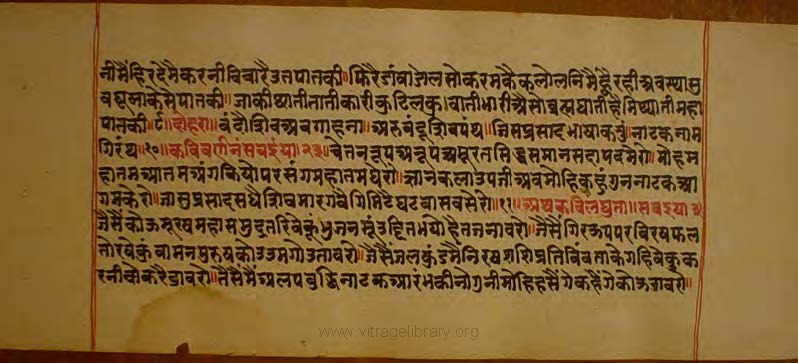 नीमैंहिरदैमैकरनीविचारैउतपातकी॥फिरैडांवाडोलसोकरमकैकलोलनिमैंह्वैरहीअवस्थासु
वघूलाकेसेपातकी॥जाकीछातीतातीकारीकुटिलकुवातीभारीऐसोब्रह्मघातीहेमिथ्यातीमहा
पातकी॥९॥दोहरा॥वंदौशिवअवगाहना॥अरुवंदूशिवपंथ॥जिसप्रसादभाषाकरूं॥नाटकनाम
गिरंथ॥१०॥कविवर्णनंसवईया॥२३॥चेतनरूपअनूपअमूरतसिद्धसमानसदापदमेरो॥मोहम
हातमआतमअंगकियोपरसंगमहातमघेरो॥ज्ञानकलाउपजीअवमोहिकहुंगुननाटकआ
गमकेरो॥जासुप्रसादसधैशिवमारगवेगिमिटैघटवासवसेरो॥११॥अथकविलघुता॥सवइया
जैसैंकोऊमूरखमहासमुद्रतरिवेकूंभुजनसूंउद्दितभयोहैतजनावरो॥जैसैंगिरऊपपरविरषफल
तोरवेकुंवामनपुरुषकोउउमगोउतावरो॥जैसैंजलकुंडमैंनिरषशशिप्रतिविंवताकेगहिवेकुंक
रनीचोकरैडावरो॥तैसैंमैंअलपबुद्धिनाटकआरंभकीनोगुनीमोहिहसैंगेकहैंगेकोऊवावरो॥
www.vitragelibrary.org